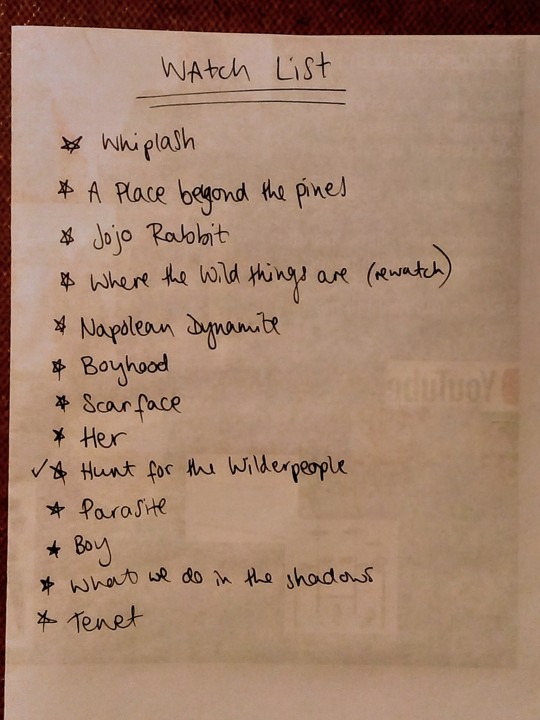 WAtch List
Whiplash
A Place beyond the pines
Jojo Rabbit
Where the Wild things are (rewatch)
Napolean Dynamite
Boyhood
Scarface
Her
Hunt for the Wilderpeople
Parasite
Boy
What we do in the shadows
Tenet
YouTube